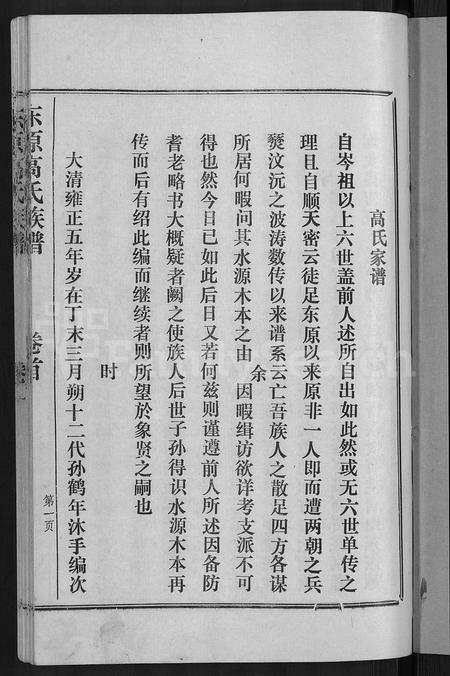 高氏家谱
自岑祖以上六世盖前人述所自出如此然或无六世单传之
理且自顺天密云徒足东原以来原非一人即而遭两朝之兵
燹汶沅之波涛数传以来谱系云亡吾族人之散足四方各谋
所居何暇问其水源木本之由 余 因暇缉访欲详考支派不可
得也然今日己如此后日又若何兹则谨遵前人所述因备防
耆老略书大概疑者阙之使族人后世子孙得识水源木本再
传而后有绍此编而继续者则所望於象贤之嗣也
时
大清雍正五年岁在丁末三月朔十二代孙鹤年沐手编次
东原高氏族谱
卷首
第一页